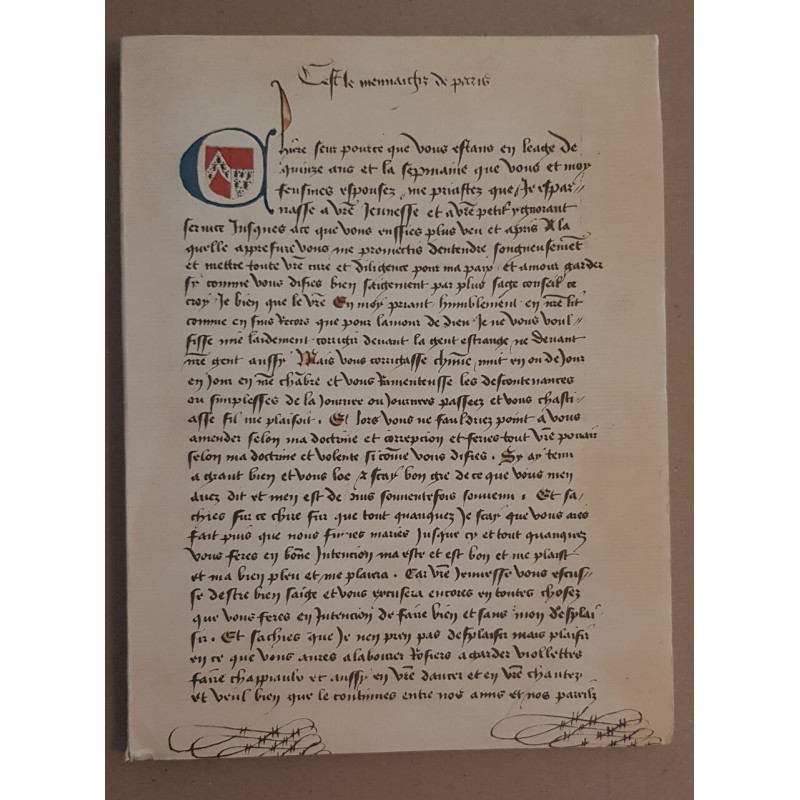 Cest le mennaichr de paris
Chiere seur pource que vous estans en leage de
quinze ans et la sepmaine que vous et moy
feusmes espousez me priastez que Je espar-
nasse a vre Jeunesse et a vre petit et ygnorant
service Jusques ace que vous eussies plus veu et apris A la
quelle appresure vous me promectes dentendre songneusemet
et mettre toute vre cure et diligence pour ma paix et amour garder
sy comme vous disies bien saigement par plus sage conseil ce
croy Je bien que le vre En moy priant humblement en nre lit
comme en suis Recors que pour lamour de dieu Je ne vous voul//
sisse mie laidement corrigir devant la gent estrange ne devant
nre gent aussy Mais vous corrigasse chune nuit en ou de Jour
en Jour en nre chabre et vous Ramenteusse les descontenances
ou simplesses de la Journee ou Journees passeez et vous chasti-
asse sil me plaisoit . Et lors vous ne fauldriez point a vous
amender selon ma doctrine et correpcion et feries tout vre pouair
selon ma doctrine et volente si come vous disies . Sy ay tenu
a grant bien et vous loe & scay bon gre de ce que vous men
avez dit et men est de puis souventefois souvenu . Et sa/
chies sur ce chiere seur que tout quanquez Je scay que vous aves
fait puis que nous fumes mariés Jusque cy et tout quanquez
vous feres en bone Intencion ma este et est bon et me plaist
et ma bien pleu et me plaira . Car vre Jeunesse vous escus//
se destre bien saige et vous excusera encores en toutes chosez
que vous feres en Intencion de faire bien et sans mon desplai
sir . Et sachies que Je nen pren pas desplaisir mais plaisir
en ce que vous aures a labourer Rosiers a garder viollettes
faire chappiaulx et aussy en vre dancer et en vre chanter
et veul bien que le continues entre nos amis et nos pareilz